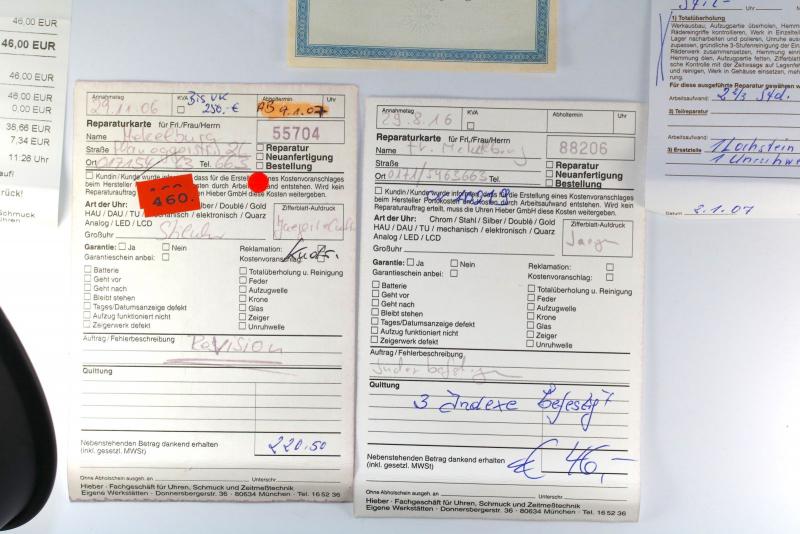 46,00 EUR
46,00 EUR
46,00 EUR
46,00 EUR
0,00 EUR
38,66 EUR
7,34 EUR
11:26 Uhr
rück!
Schmuck
Uhren
Annahmetag KVA Abholtermin Uhr
29.11.06 Bis VK 250,-€ AB 9.1.07
Reparaturkarte für Frl./Frau/Herrn 55704
Name
Straße Reparatur
Neuanfertigung
Ort Tel. Bestellung
Kundin/Kunde wurde informiert, dass für die Erstellung eines Kostenvoranschlages
beim Hersteller Portokosten durch Arbeitsaufwand entstehen. Wird kein
Reparaturauftrag GmbH diese Kosten weitergeben.
460.
Art der Uhr: Silber / Doublé / Gold Zifferblatt-Aufdruck
HAU / DAU / TU / mechanisch / elektronisch / Quarz
Analog / LED / LCD
Großuhr
Garantie: Ja Nein Reklamation:
Garantieschein anbei: Kostenvoranschlag:
Batterie Totalüberholung u. Reinigung
Geht vor Feder
Geht nach Aufzugwelle
Bleibt stehen Krone
Tages/Datumsanzeige defekt Glas
Aufzug funktioniert nicht Zeiger
Zeigerwerk defekt Unruhwelle
Auftrag / Fehlerbeschreibung
Revision
Quittung
Nebenstehenden Betrag dankend erhalten 220.50
(inkl. gesetzl. MWSt)
Ohne Abholschein ausgeh. an Unterschr.
Hieber - Fachgeschäft für Uhren, Schmuck und Zeitmeßtechnik
Eigene Werkstätten - Donnersbergerstr. 36 - 80634 München - Tel. 16 52 36
Annahmetag KVA Abholtermin Uhr
29.8.16
Reparaturkarte für Frl./Frau/Herrn 88206
Name Fr.
Straße Reparatur
Neuanfertigung
Ort 0171/5463663 Tel. Bestellung
Kundin/Kunde wurde informiert, dass für die Erstellung eines Kostenvoranschlages
beim Hersteller Portokosten durch Arbeitsaufwand entstehen. Wird kein
Reparaturauftrag erteilt, muss die Uhren Hieber GmbH diese Kosten weitergeben.
Art der Uhr: Chrom / Stahl / Silber / Doublé / Gold Zifferblatt-Aufdruck
HAU / DAU / TU / mechanisch / elektronisch / Quarz
Analog / LED / LCD
Großuhr
Garantie: Ja Nein Reklamation:
Garantieschein anbei: Kostenvoranschlag:
Batterie Totalüberholung u. Reinigung
Geht vor Feder
Geht nach Aufzugwelle
Bleibt stehen Krone
Tages/Datumsanzeige defekt Glas
Aufzug funktioniert nicht Zeiger
Zeigerwerk defekt Unruhwelle
Auftrag / Fehlerbeschreibung
Quittung
3 Indexe befestigt
Nebenstehenden Betrag dankend erhalten € 46,-
(inkl. gesetzl. MWSt)
Ohne Abholschein ausgeh. an Unterschr.
Hieber - Fachgeschäft für Uhren, Schmuck und Zeitmeßtechnik
Eigene Werkstätten - Donnersbergerstr. 36 - 80634 München - Tel. 16 52 36
Uhr Mo
1) Totalüberholung
Werkausbau, Aufzugpartie überholen, Hemm
Rädereingriffe kontrollieren, Werk in Einzelteil
Lager nacharbeiten und polieren, Unruhe auswu
zupassen, gründliche 3-Stufenreinigung der Ein
Hemmung ölen, Aufzugpartie fetten, Zifferblatt
sche Kontrolle mit der Zeitwaage auf
und reinigen, Werk in Gehäuse einsetzen,
rung.
Für diese ausgeführte Reparatur gewähren w
Arbeitsaufwand: 2 2/3 Std.
2) Teilreparatur
Arbeitsaufwand:
3) Ersatzteile 1 Lochstein
1 Unruhw
Datum 2.1.07